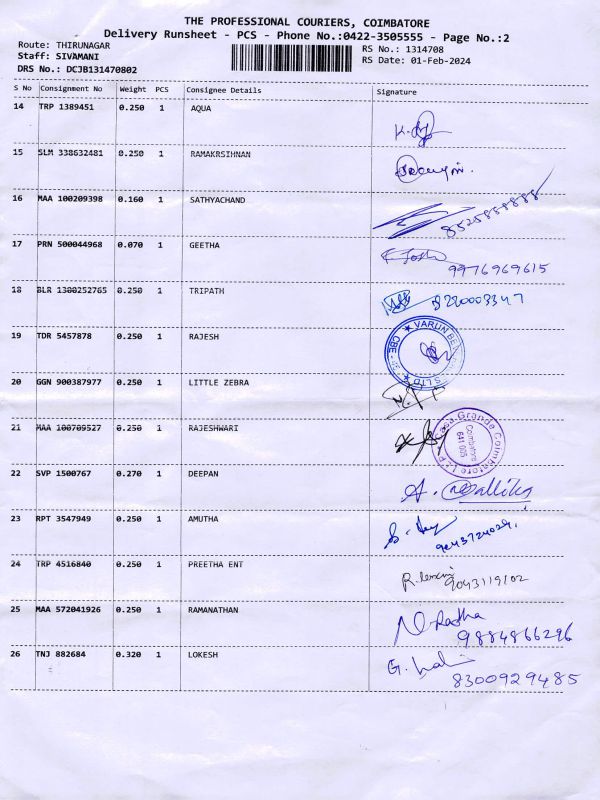 THE PROFESSIONAL COURIERS, COIMBATORE
Delivery Runsheet - PCS - Phone No.:0422-3505555 - Page No.:2
Route: THIRUNAGAR
Staff: SIVAMANI
DRS No.: DCJB131470802
RS No.: 1314708
RS Date: 01-Feb-2024
S No Consignment No Weight PCS Consignee Details Signature
14 TRP 1389451 0.250 1 AQUA
15 SLM 338632481 0.250 1 RAMAKRSIHNAN
16 MAA 100209398 0.160 1 SATHYACHAND
8525858888
17 PRN 500044968 0.070 1 GEETHA
9976969615
18 BLR 1300252765 0.250 1 TRIPATH
8220003347
19 TDR 5457878 0.250 1 RAJESH
VARUN
CBE
LTD
20 GGN 900387977 0.250 1 LITTLE ZEBRA
21 MAA 100709527 0.250 1 RAJESHWARI
Casa Grande Coimbatore LLP
Coimbatore
641 005
22 SVP 1500767 0.270 1 DEEPAN
23 RPT 3547949 0.250 1 AMUTHA
24 TRP 4516840 0.250 1 PREETHA ENT
9043119102
25 MAA 572041926 0.250 1 RAMANATHAN
9884866296
26 TNJ 882684 0.320 1 LOKESH
8300929485